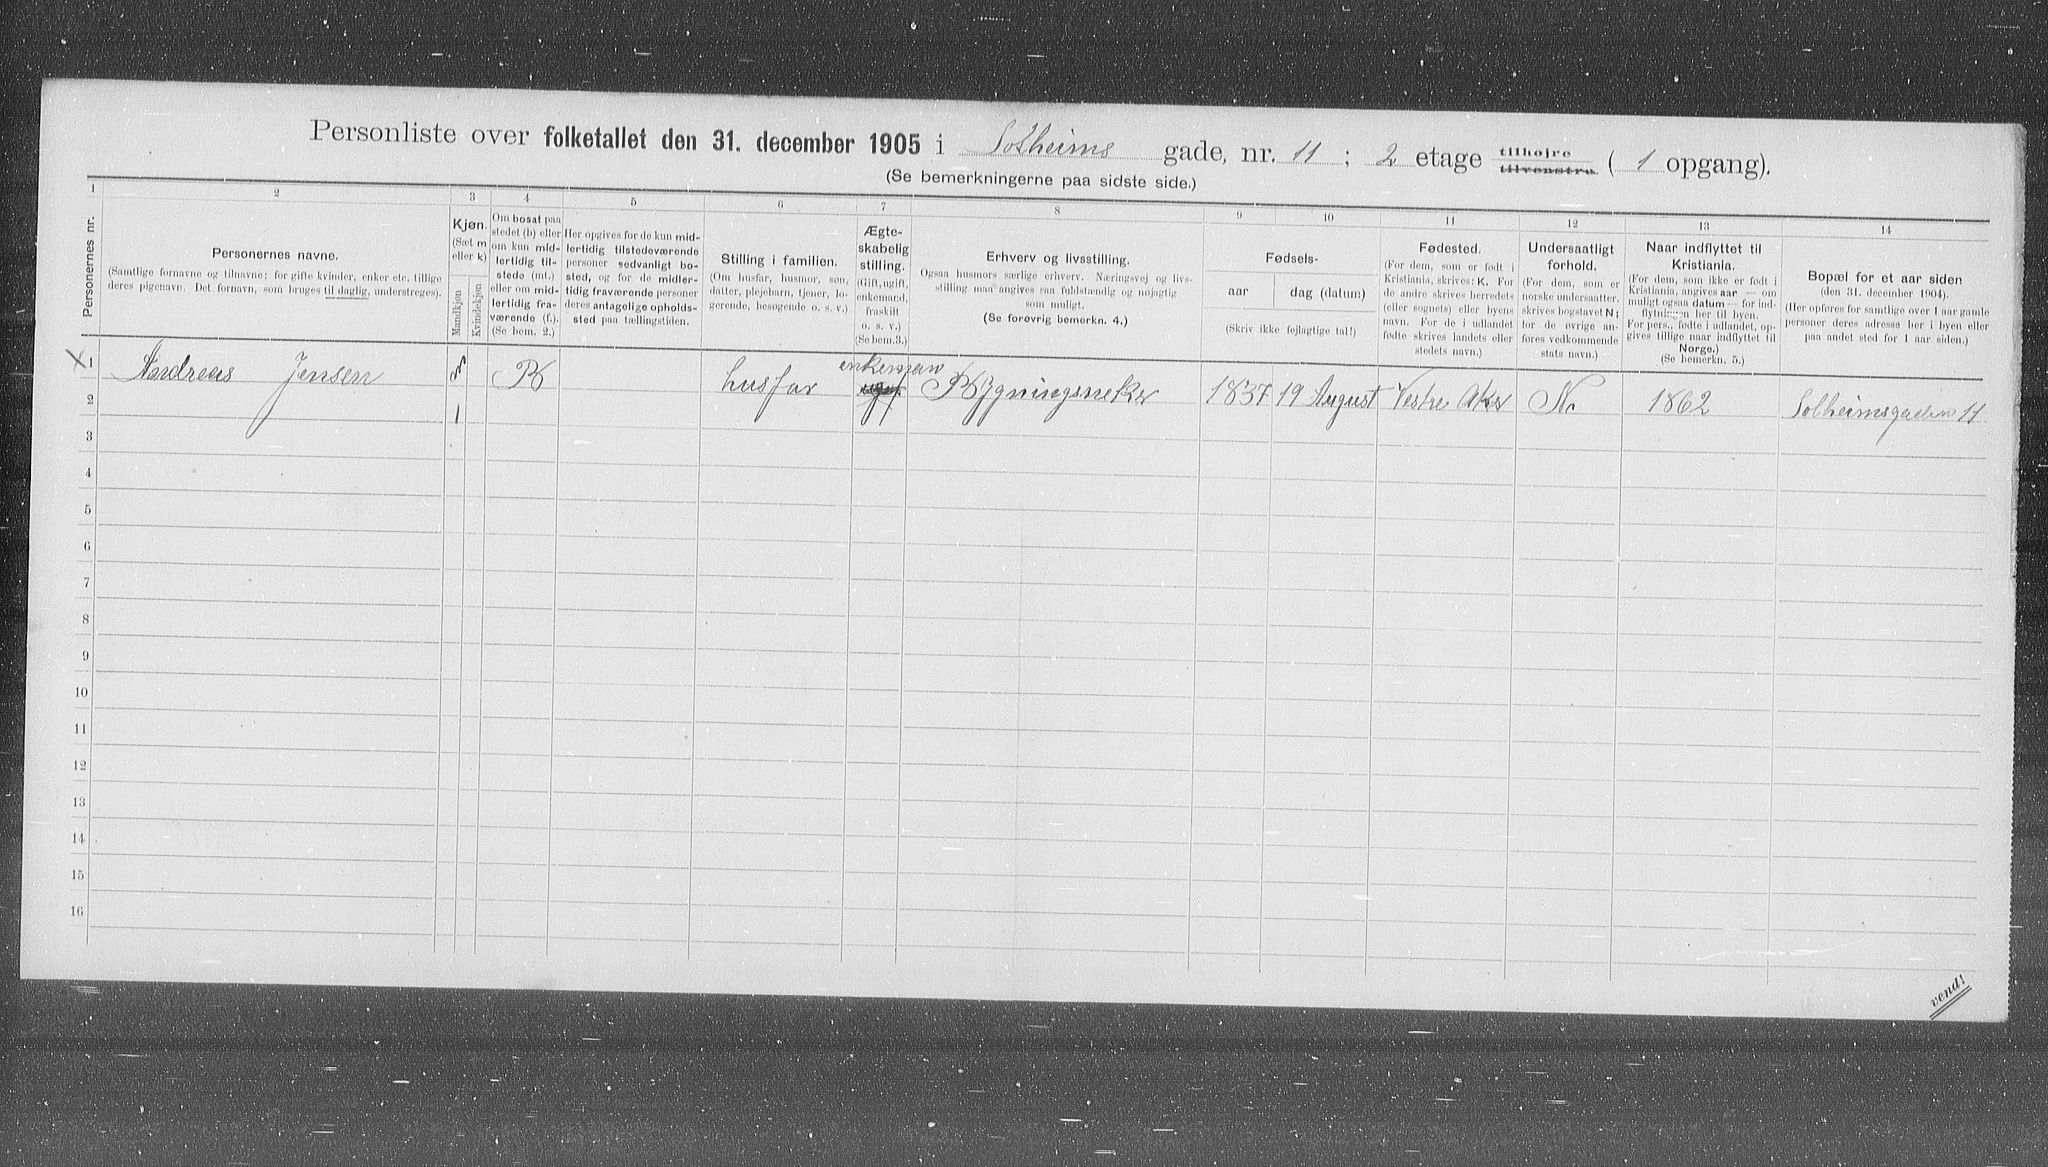 Personliste over folketallet den 31. december 1905 i Solheims gade, nr. 11 ; 2 etage tilhøjre tilvenstre ( 1 opgang).
(Se bemerkningerne paa sidste side.)
1 2 3 4 5 6 7 8 9 10 11 12 13 14
Personernes nr.
Personernes navne.
(Samtlige fornavne og tilnavne; for gifte kvinder, enker etc. tillige
deres pigenavn. Det fornavn, som bruges til daglig, understreges).
Kjøn.
(Sæt m
eller k)
Mandkjøn
Kvindekjøn
Om bosat paa
stedet (b) eller
om kun mid-
lertidig til-
stede (mt.)
eller om mid-
lertidig fra-
værende (f.).
(Se bem. 2.)
Her opgives for de kun mid-
lertidig tilstedeværende
personer sedvanligt bo-
sted, og for de midler-
tidig fraværende personer
deres antagelige opholds-
sted paa tællingstiden.
Stilling i familien.
(Om husfar, husmor, søn,
datter, plejebarn, tjener, lo-
gerende, besøgende o. s. v.)
Ægte-
skabelig
stilling.
(Gift, ugift,
enkemand,
fraskilt
o. s. v.)
(Se bem.3.)
Erhverv og livsstilling.
Ogsaa husmors særlige erhverv. Næringsvej og livs-
stilling maa angives saa fuldstændig og nøjagtig
som muligt.
(Se forøvrig bemerkn. 4.)
Fødsels-
aar
dag (datum)
(Skriv ikke fejlagtige tal!)
Fødested.
(For dem, som er født i
Kristiania, skrives: K. For
de andre skrives herredets
(eller sognets) eller byens
navn. For de i udlandet
fødte skrives landets eller
stedets navn.)
Undersaatligt
forhold.
(For dem, som er
norske undersaatter,
skrives bogstavet N;
for de øvrige an-
føres vedkommende
stats navn.)
Naar indflyttet til
Kristiania.
(For dem, som ikke er født i
Kristiania, angives aar — om
muligt ogsaa datum — for ind-
flytningen her til byen.
For pers., fødte i udlandet, op-
gives tillige naar indflyttet til
Norge.)
(Se bemerkn. 5.)
Bopæl for et aar siden
(den 31. december 1904).
(Her opføres for samtlige over 1 aar gamle
personer deres adresse her i byen eller
paa andet sted for 1 aar siden.)
enkeman
1 Andreas Jensen m B husfar Bygningssneker 1837 19 August Vestre Aker N. 1862 Solheimsgaden 11
2 1
3
4
5
6
7
8
9
10
11
12
13
14
15
16
vend!